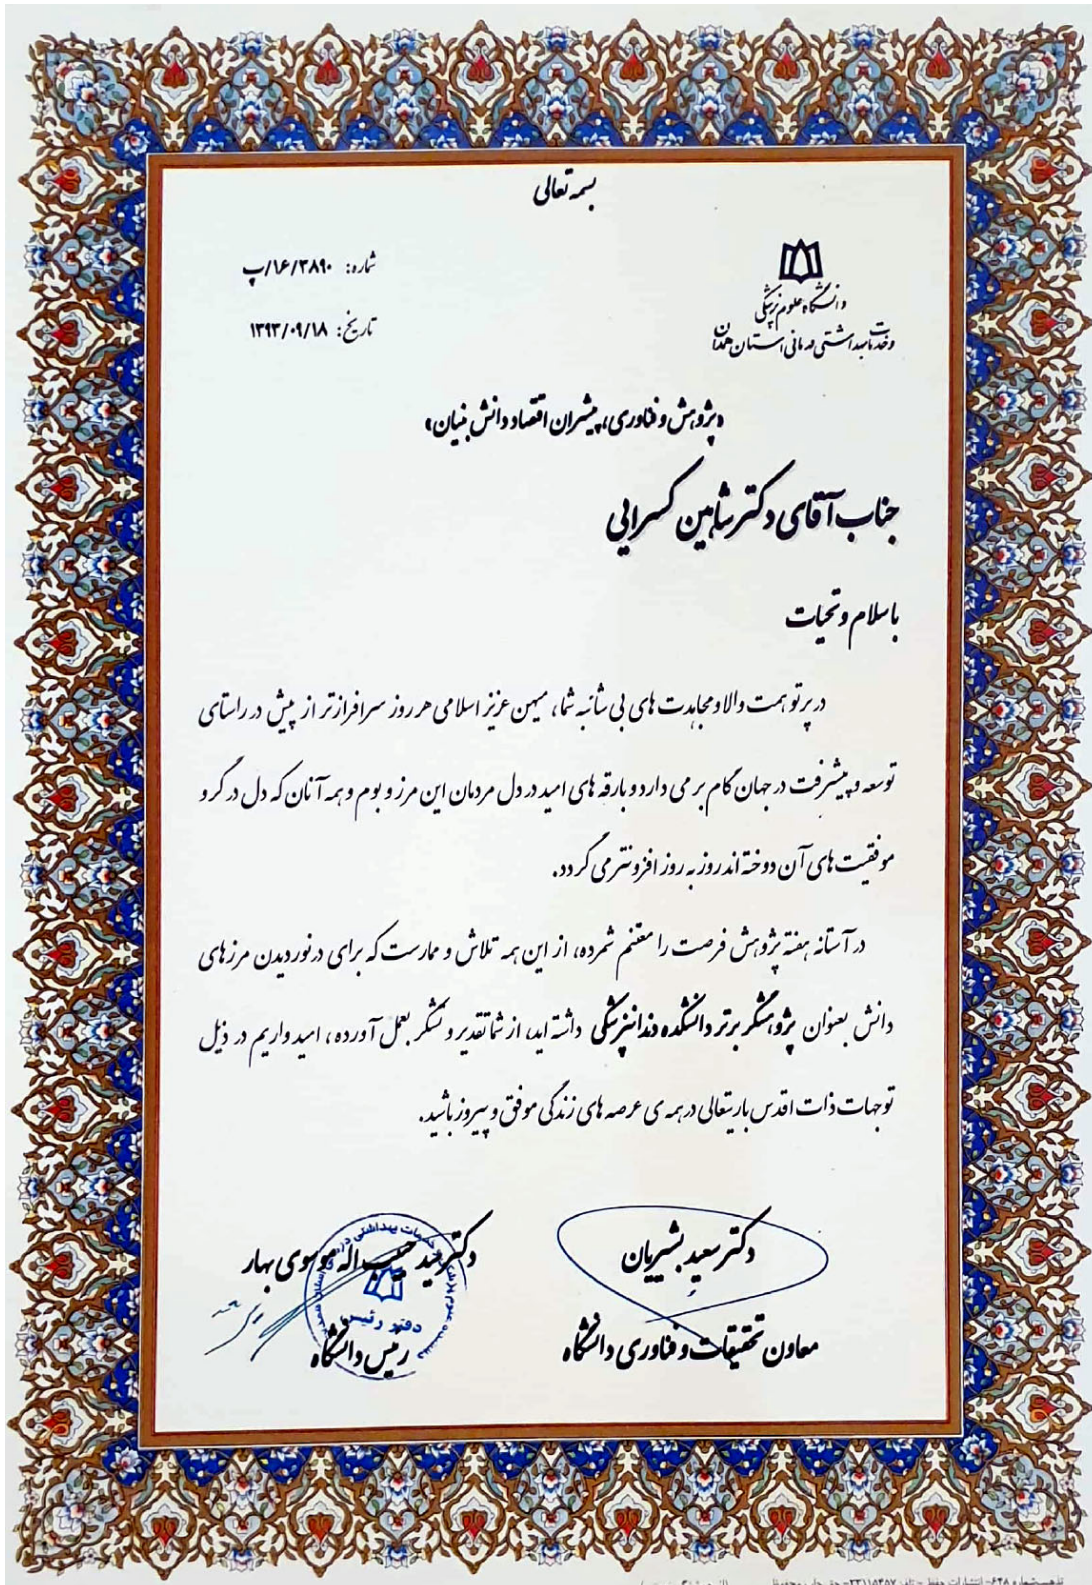 بسمه تعالی
دانشگاه علوم پزشکی
وخدمات بهداشتی درمانی استان همدان
شماره: ۱۶/۳۸۹۰/پ
تاریخ: ۱۳۹۳/۰۹/۱۸
«پژوهش و فناوری، پیشران اقتصاد دانش بنیان»
جناب آقای دکتر شاهین کسرایی
باسلام و تحیات
در پرتو همت والا و مجاهدت های بی شائبه شما، میهن عزیز اسلامی هر روز سرافرازتر از پیش در راستای
توسعه و پیشرفت در جهان گام برمی دارد و بارقه های امید در دل مردمان این مرز و بوم و همه آنان که دل در گرو
موفقیت های آن دوخته اند روز به روز افزونتر می گردد.
در آستانه هفته پژوهش فرصت را مغتنم شمرده، از این همه تلاش و ممارست که برای درنوردیدن مرزهای
دانش بعنوان پژوهشگر برتر دانشکده دندانپزشکی داشته اید، از شما تقدیر و تشکر بعمل آورده، امید واریم در ذیل
توجهات ذات اقدس باریتعالی در همه ی عرصه های زندگی موفق و پیروز باشید.
دکتر سعید بشیریان
معاون تحقیقات و فناوری دانشگاه
دکتر سید حبیب اله موسوی بهار
رئیس دانشگاه
دفتر رئیس